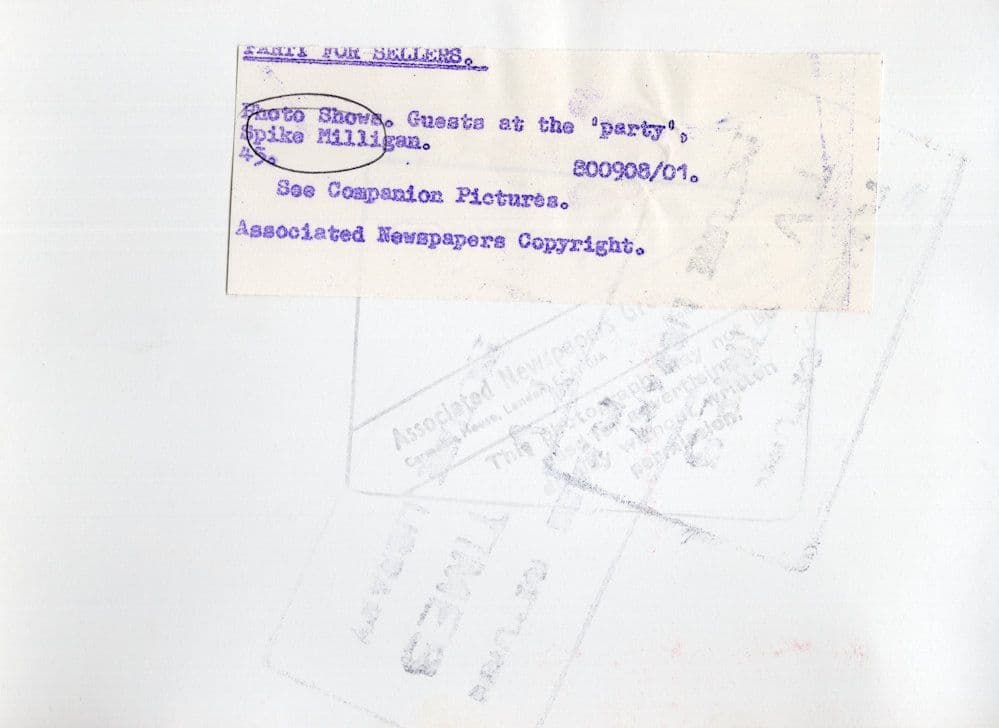 PARTY FOR SELLERS.
Photo Shows. Guests at the 'party',
Spike Milligan.
45.
800908/01.
See Companion Pictures.
Associated Newspapers Copyright.
Associated Newspapers
House, London
This photograph may not be
used for advertising
without written
permission.
TIMES